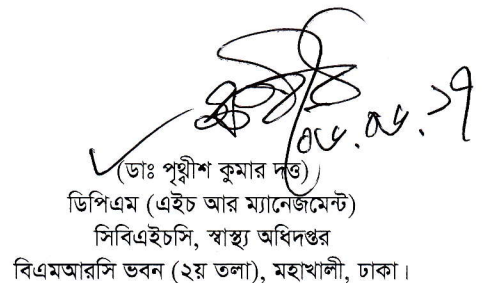 ০৮.০৮.১৭
(ডাঃ পৃথ্বীশ কুমার দত্ত)
ডিপিএম (এইচ আর ম্যানেজমেন্ট)
সিবিএইচসি, স্বাস্থ্য অধিদপ্তর
বিএমআরসি ভবন (২য় তলা), মহাখালী, ঢাকা।